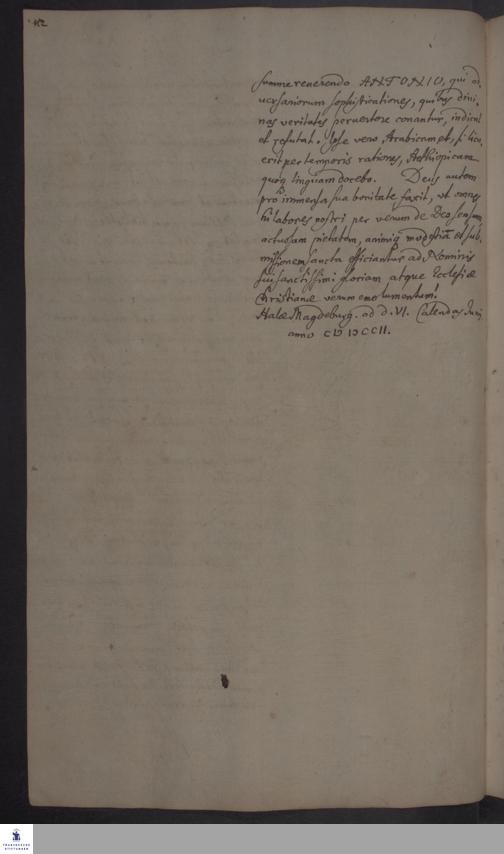 152
summe reuerendo ANTONIO, qui ad-
uersariorum sophisticationes, quibus diui-
nas veritates peruertere conantur, indicat
et refutat. Ipse vero, Arabicam et, si lice,
erit per temporis rationes, Aethiopicam
quoq linguam docebo. Deus autem
pro immensa sua bonitate faxit, vt omnes
hi labores nostri per verum de Deo sensum,
actuosam pietatem, animiq modestiã et sub-
missionem sancta efficiantur ad Nominis
sui sanctissimi gloriam atque Ecclesiæ
Christianæ verum emolumentum!
Halæ Magdeburg. ad d. VI. Calendas Iunij
anno CIƆ IƆCCII.
FRANCKESCHE
STIFTUNGEN